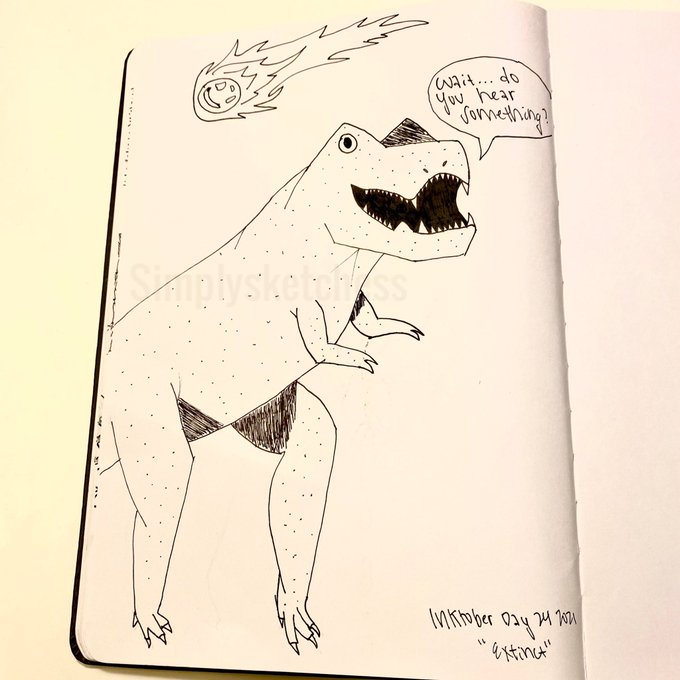 wait... do
you hear
something?
Simplysketchess
Inktober Day 24 2021
"extinct"